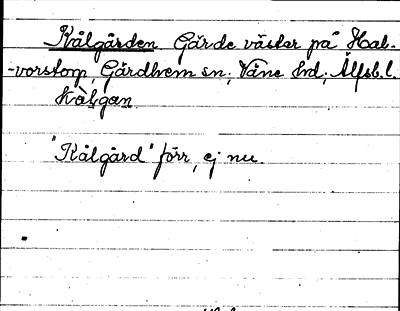 Kålgården Gärde väster på Hal-
-vorstorp, Gärdhem sn; Väne hd; Älfsb. l.
kàlgan
"Kålgård" förr, ej nu.